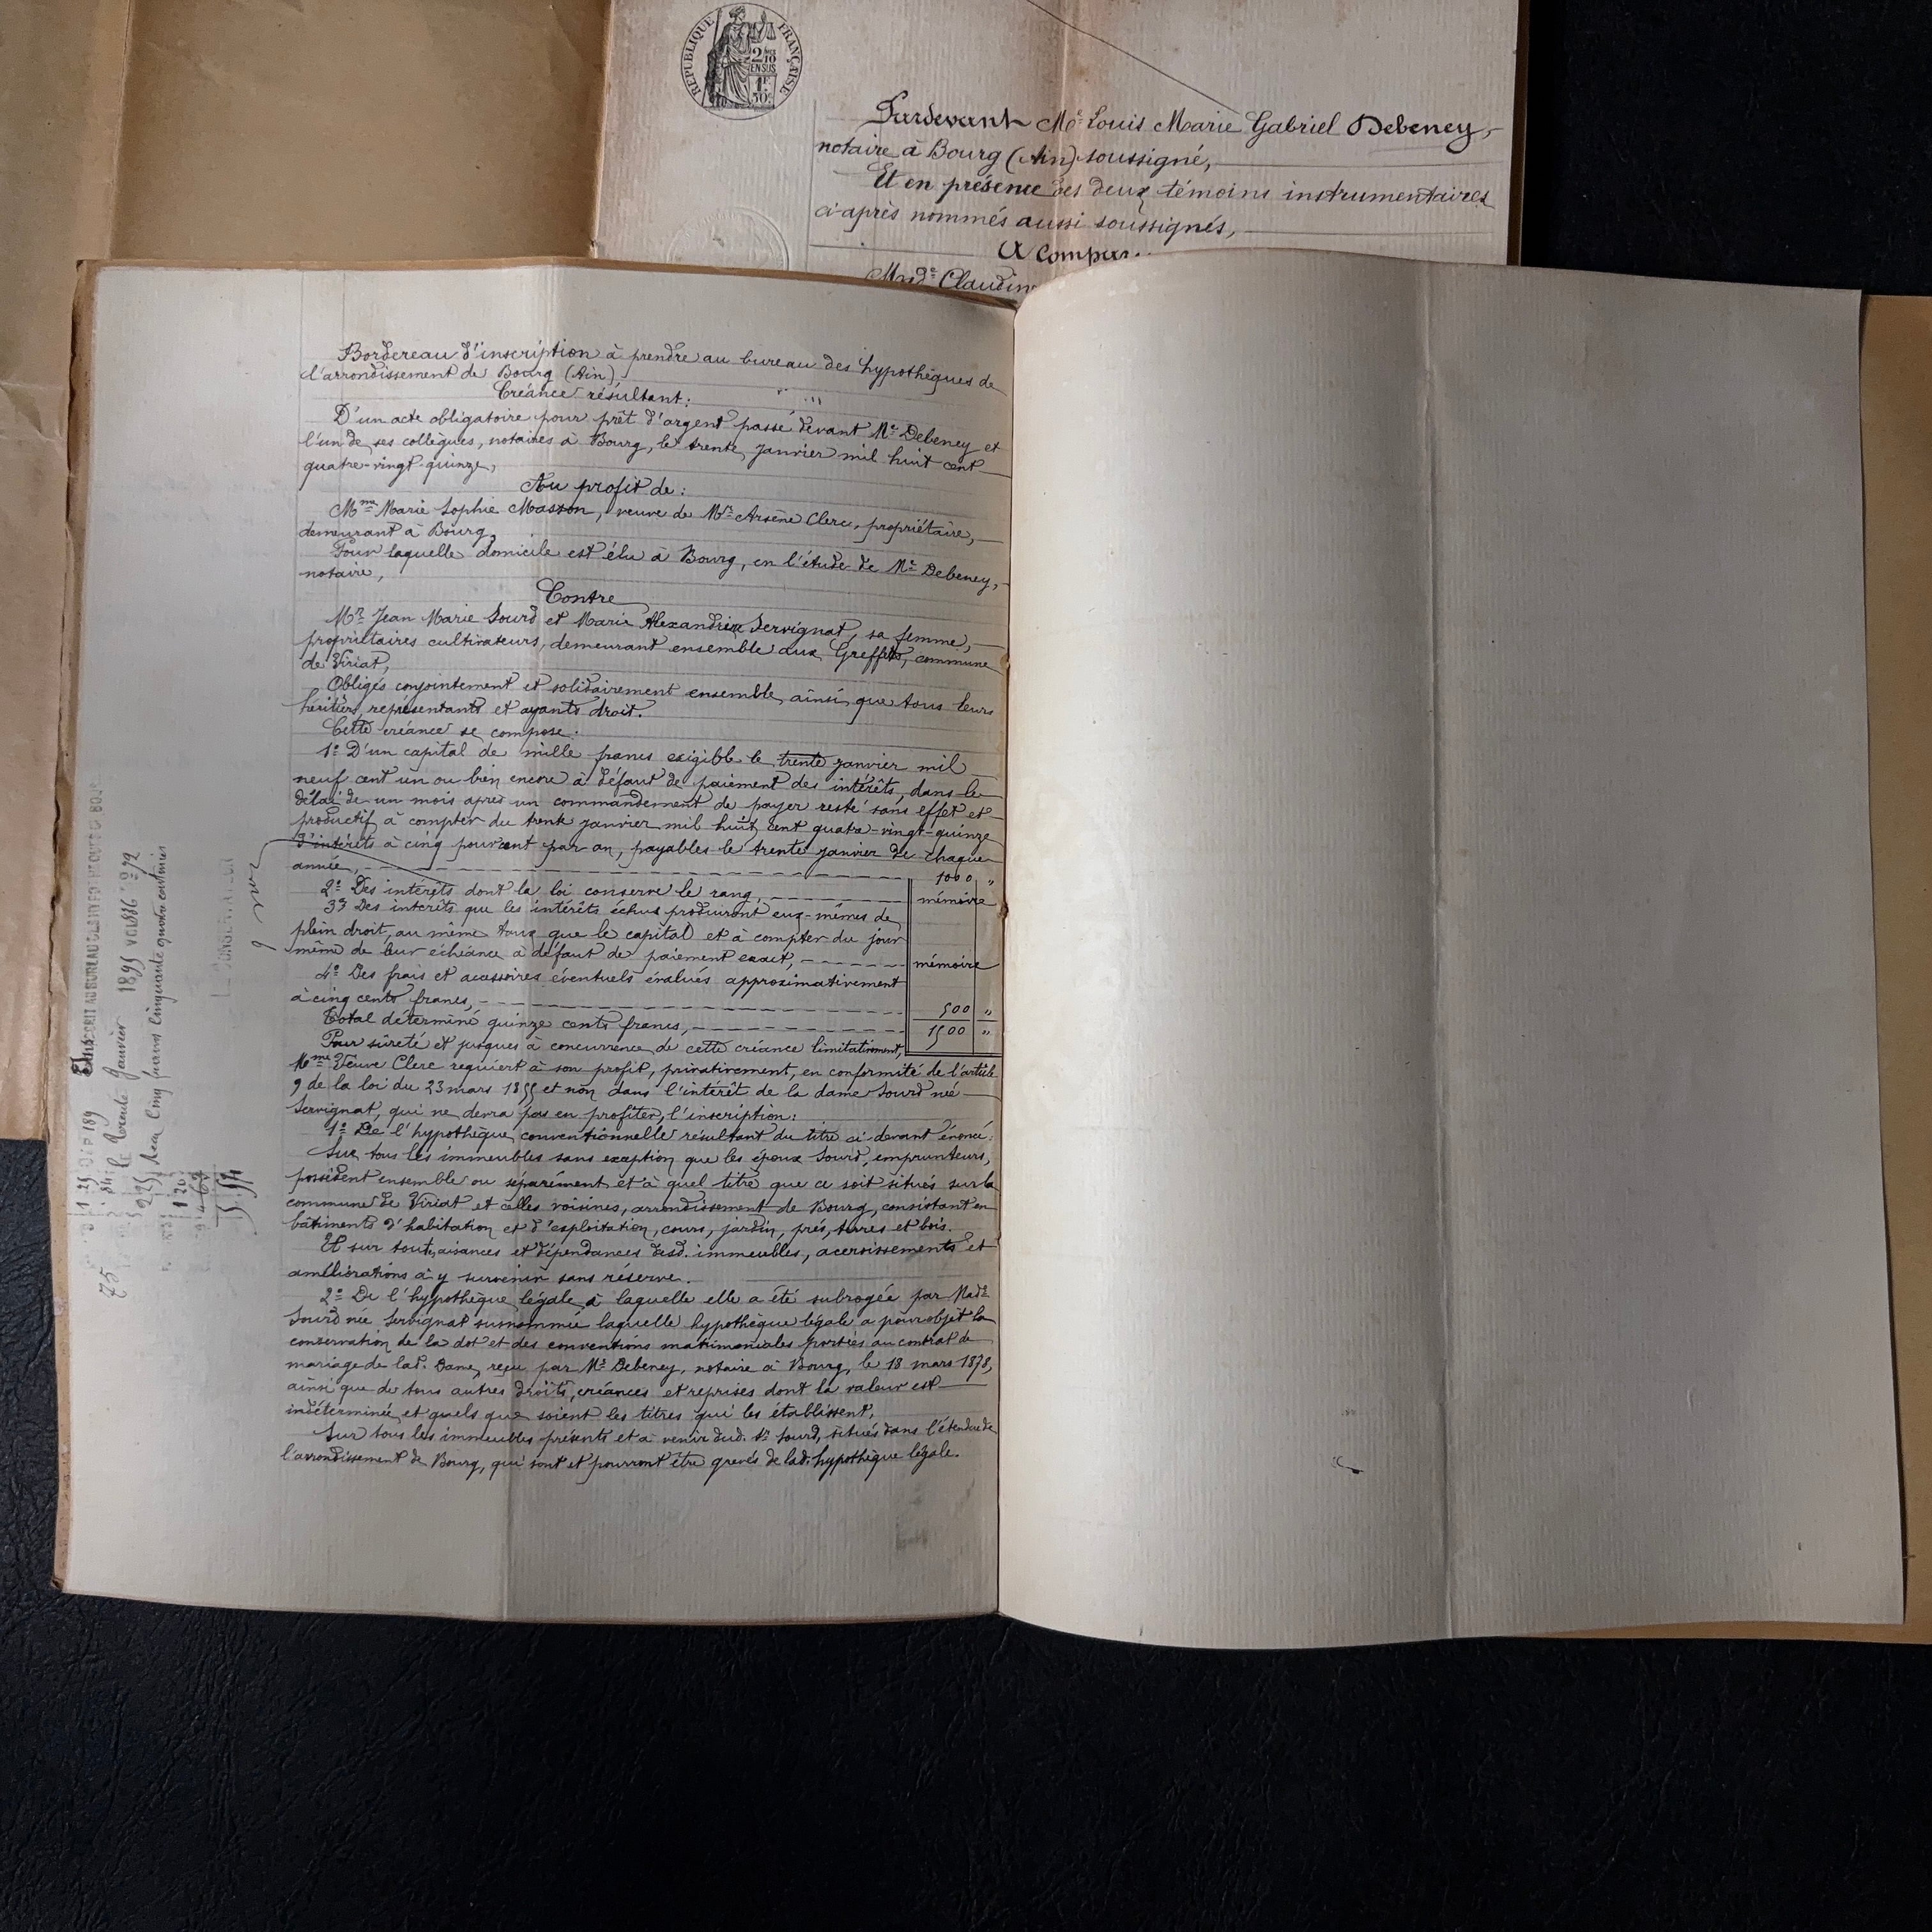 RÉPUBLIQUE FRANÇAISE
2/10
EN SUS
1F
50c
Pardevant Me Louis Marie Gabriel Debeney,
notaire à Bourg (Ain) soussigné,
Et en présence des deux témoins instrumentaires
ci-après nommés aussi soussignés,
A Compar
Made Claudin
Bordereau d'inscription à prendre au bureau des hypothèques de
l'arrondissement de Bourg (Ain)
Créance résultant:
D'un acte obligatoire pour prêt d'argent passé devant Me Debeney et
l'un de ses collègues, notaires à Bourg, le trente janvier mil huit cent
quatre-vingt-quinze,
Au profit de:
Mme Marie Sophie Masson, veuve de Mr Arsène Clerc, propriétaire,
demeurant à Bourg,
Pour laquelle domicile est élu à Bourg, en l'étude de Me Debeney,
notaire,
Contre
Mr Jean Marie Sourd et Marie Alexandrine Servignat, sa femme,
propriétaires cultivateurs, demeurant ensemble aux Greffets, commune
de Viriat,
Obligés conjointement et solidairement ensemble ainsi que tous leurs
héritiers, représentants et ayants droit.
Cette créance se compose:
1o D'un capital de mille francs exigible le trente janvier mil
neuf cent un ou bien encore à défaut de paiement des intérêts, dans le
délai de un mois après un commandement de payer resté sans effet et
productif à compter du trente janvier mil huit cent quatre-vingt-quinze
d'intérêts à cinq pour cent par an, payables le trente janvier de chaque
année, 1000 "
2o Des intérêts dont la loi conserve le rang, mémoire
3o Des intérêts que les intérêts échus produiront eux-mêmes de
plein droit, au même taux que le capital et à compter du jour
même de leur échéance à défaut de paiement exact, mémoire
4o Des frais et accessoires éventuels évalués approximativement
à cinq cents francs, 500 "
Total déterminé quinze cents francs, 1500 "
Pour sûreté et jusques à concurrence de cette créance limitativement,
Mme Veuve Clerc requiert à son profit, privativement, en conformité de l'article
9 de la loi du 23 mars 1855 et non dans l'intérêt de la dame Sourd née
Servignat, qui ne devra pas en profiter, l'inscription:
1o De l'hypothèque conventionnelle résultant du titre ci-devant énoncé:
Sur tous les immeubles sans exception que les époux Sourd, emprunteurs,
possèdent ensemble ou séparément et à quel titre que ce soit situés sur la
commune de Viriat et celles voisines, arrondissement de Bourg, consistant en
bâtiments d'habitation et d'exploitation, cours, jardin, prés, terres et bois.
Et sur toutes aisances et dépendances desd. immeubles, aceroissements et
améliorations à y survenir sans réserve.
2o De l'hypothèque légale à laquelle elle a été subrogée par Made
Sourd née Servignat susnommée laquelle hypothèque légale a pour objet la
conservation de la dot et des conventions matrimoniales portées au contrat de
mariage de lad. Dame, reçu par Me Debeney, notaire à Bourg, le 18 mars 1878,
ainsi que de tous autres droits, créances et reprises dont la valeur est
indéterminée et quels que soient les titres qui les établissent,
Sur tous les immeubles présents et à venir dud. Sr Sourd, situés dans l'étendue de
l'arrondissement de Bourg, qui sont et pourront être grevés de lad. hypothèque légale.
INSCRIT AU BUREAU DES HYPOTHÈQUES
le trente Janvier 1895 vol 886 no 92
Reçu Cinq francs Cinquante quatre centimes
LE CONSERVATEUR
75